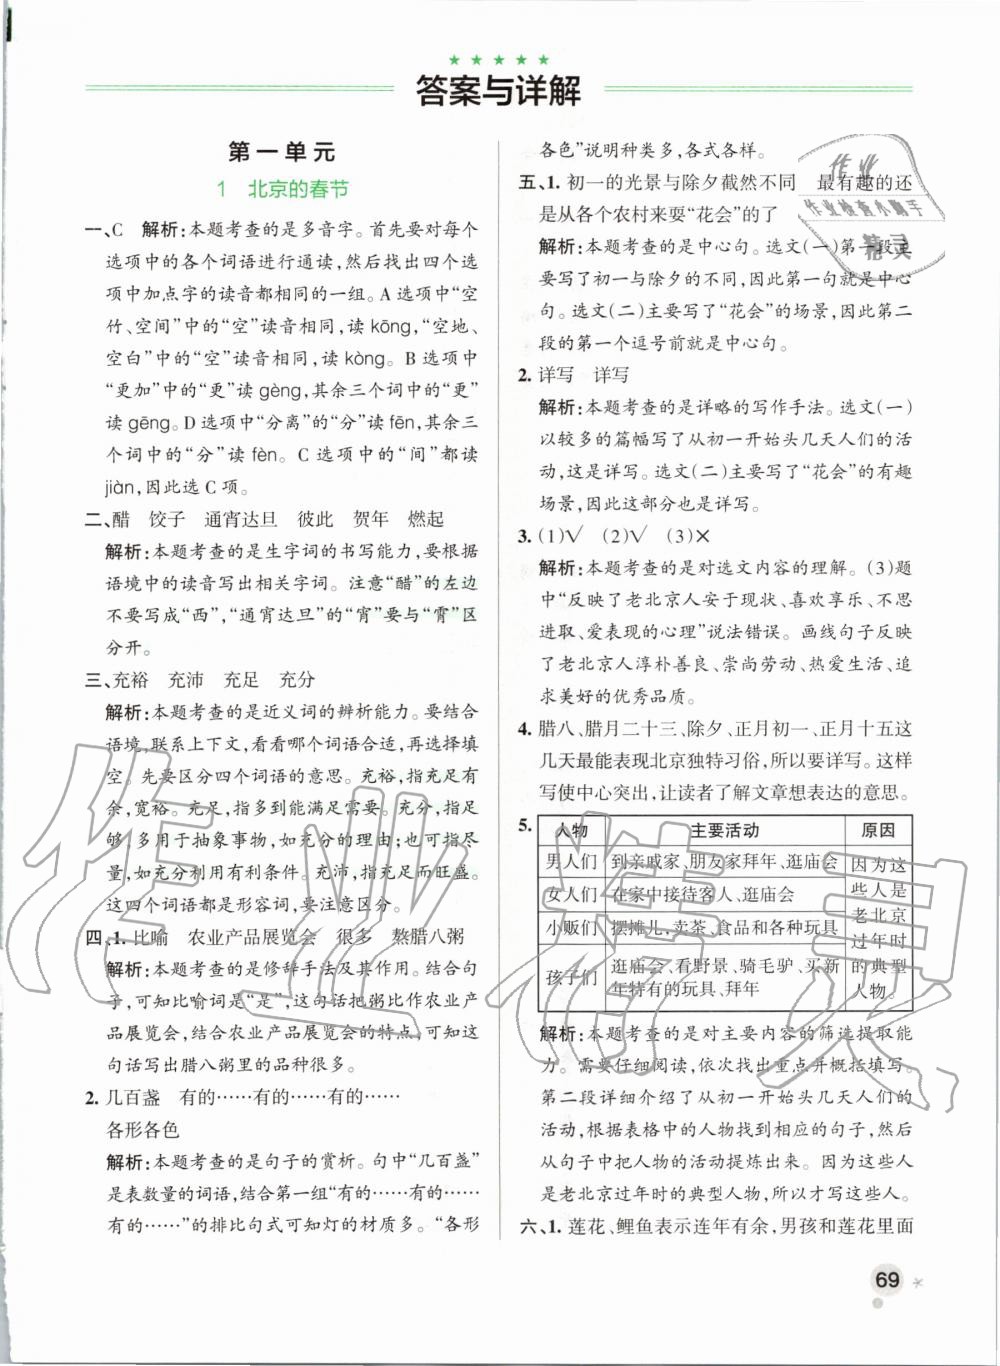 答案与详解
第一单元
1 北京的春节
一、C 解析:本题考查的是多音字。首先要对每个
选项中的各个词语进行通读,然后找出四个选
项中加点字的读音都相同的一组。A选项中“空
竹、空间”中的“空”读音相同,读kōng,“空地、
空白”中的“空”读音相同,读kòng。B选项中
“更加”中的“更”读gèng,其余三个词中的“更”
读gēng。D选项中“分离”的“分”读fēn,其余三
个词中的“分”读fèn。C选项中的“间”都读
jiàn,因此选C项。
二、醋 饺子 通宵达旦 彼此 贺年 燃起
解析:本题考查的是生字词的书写能力,要根据
语境中的读音写出相关字词。注意“醋”的左边
不要写成“西”,“通宵达旦”的“宵”要与“霄”区
分开。
三、充裕 充沛 充足 充分
解析:本题考查的是近义词的辨析能力。要结合
语境,联系上下文,看看哪个词语合适,再选择填
空。先要区分四个词语的意思。充裕,指充足有
余,宽裕。充足,指多到能满足需要。充分,指足
够,多用于抽象事物,如充分的理由;也指尽量,
如充分利用有利条件。充沛,指充足而旺盛。
这四个词语都是形容词,要注意区分。
四、1. 比喻 农业产品展览会 很多 熬腊八粥
解析:本题考查的是修辞手法及其作用。结合句
子,可知比喻词是“是”,这句话把粥比作农业产
品展览会,结合农业产品展览会的特点,可知这
句话写出腊八粥里的东西的种类很多。
2. 几百盏 有的……有的……有的……
各形各色
解析:本题考查的是句子的赏析。句中“几百盏”
是表数量的词语,结合第一组“有的……有的……
有的……”的排比句式可知灯的材质多。“各形
各色”说明种类多,各式各样。
五、1. 初一的光景与除夕截然不同 最有趣的还
是从各个农村来耍“花会”的了
解析:本题考查的是中心句。选文(一)第一段主
要写了初一与除夕的不同,因此第一句就是中心
句。选文(二)主要写了“花会”的场景,因此第二
段的第一个逗号前就是中心句。
2. 详写 详写
解析:本题考查的是详略的写作手法。选文(一)
以较多的篇幅写了从初一开始头几天人们的活
动,这是详写。选文(二)主要写了“花会”的有趣
场景,因此这部分也是详写。
3. (1)√ (2)√ (3)×
解析:本题考查的是对选文内容的理解。(3)题
中“反映了老北京人安于现状、喜欢享乐、不思
进取、爱表现的心理”说法错误。画线句子反映
了老北京人淳朴善良、崇尚劳动、热爱生活、追
求美好的优秀品质。
4. 腊八、腊月二十三、除夕、正月初一、正月十五这
几天最能表现北京独特习俗,所以要详写。这样
写使中心突出,让读者了解文章想表达的意思。
5. 人物 主要活动 原因
男人们 到亲戚家、朋友家拜年、逛庙会 因为这
女人们 在家中接待客人、逛庙会 些人是
老北京
小贩们 摆摊儿,卖茶、食品和各种玩具 过年时
孩子们 逛庙会、看野景、骑毛驴、买新 的典型
年特有的玩具、拜年 人物。
解析:本题考查的是对主要内容的筛选提取能
力。需要仔细阅读,依次找出重点并概括填写。
第二段详细介绍了从初一开始头几天人们的活
动,根据表格中的人物找到相应的句子,然后
从句子中把人物的活动提炼出来。因为这些人
是老北京过年时的典型人物,所以写这些人。
六、1. 莲花、鲤鱼表示连年有余,男孩和莲花里面
69
作业
作业检查小助手
精灵
作业精灵